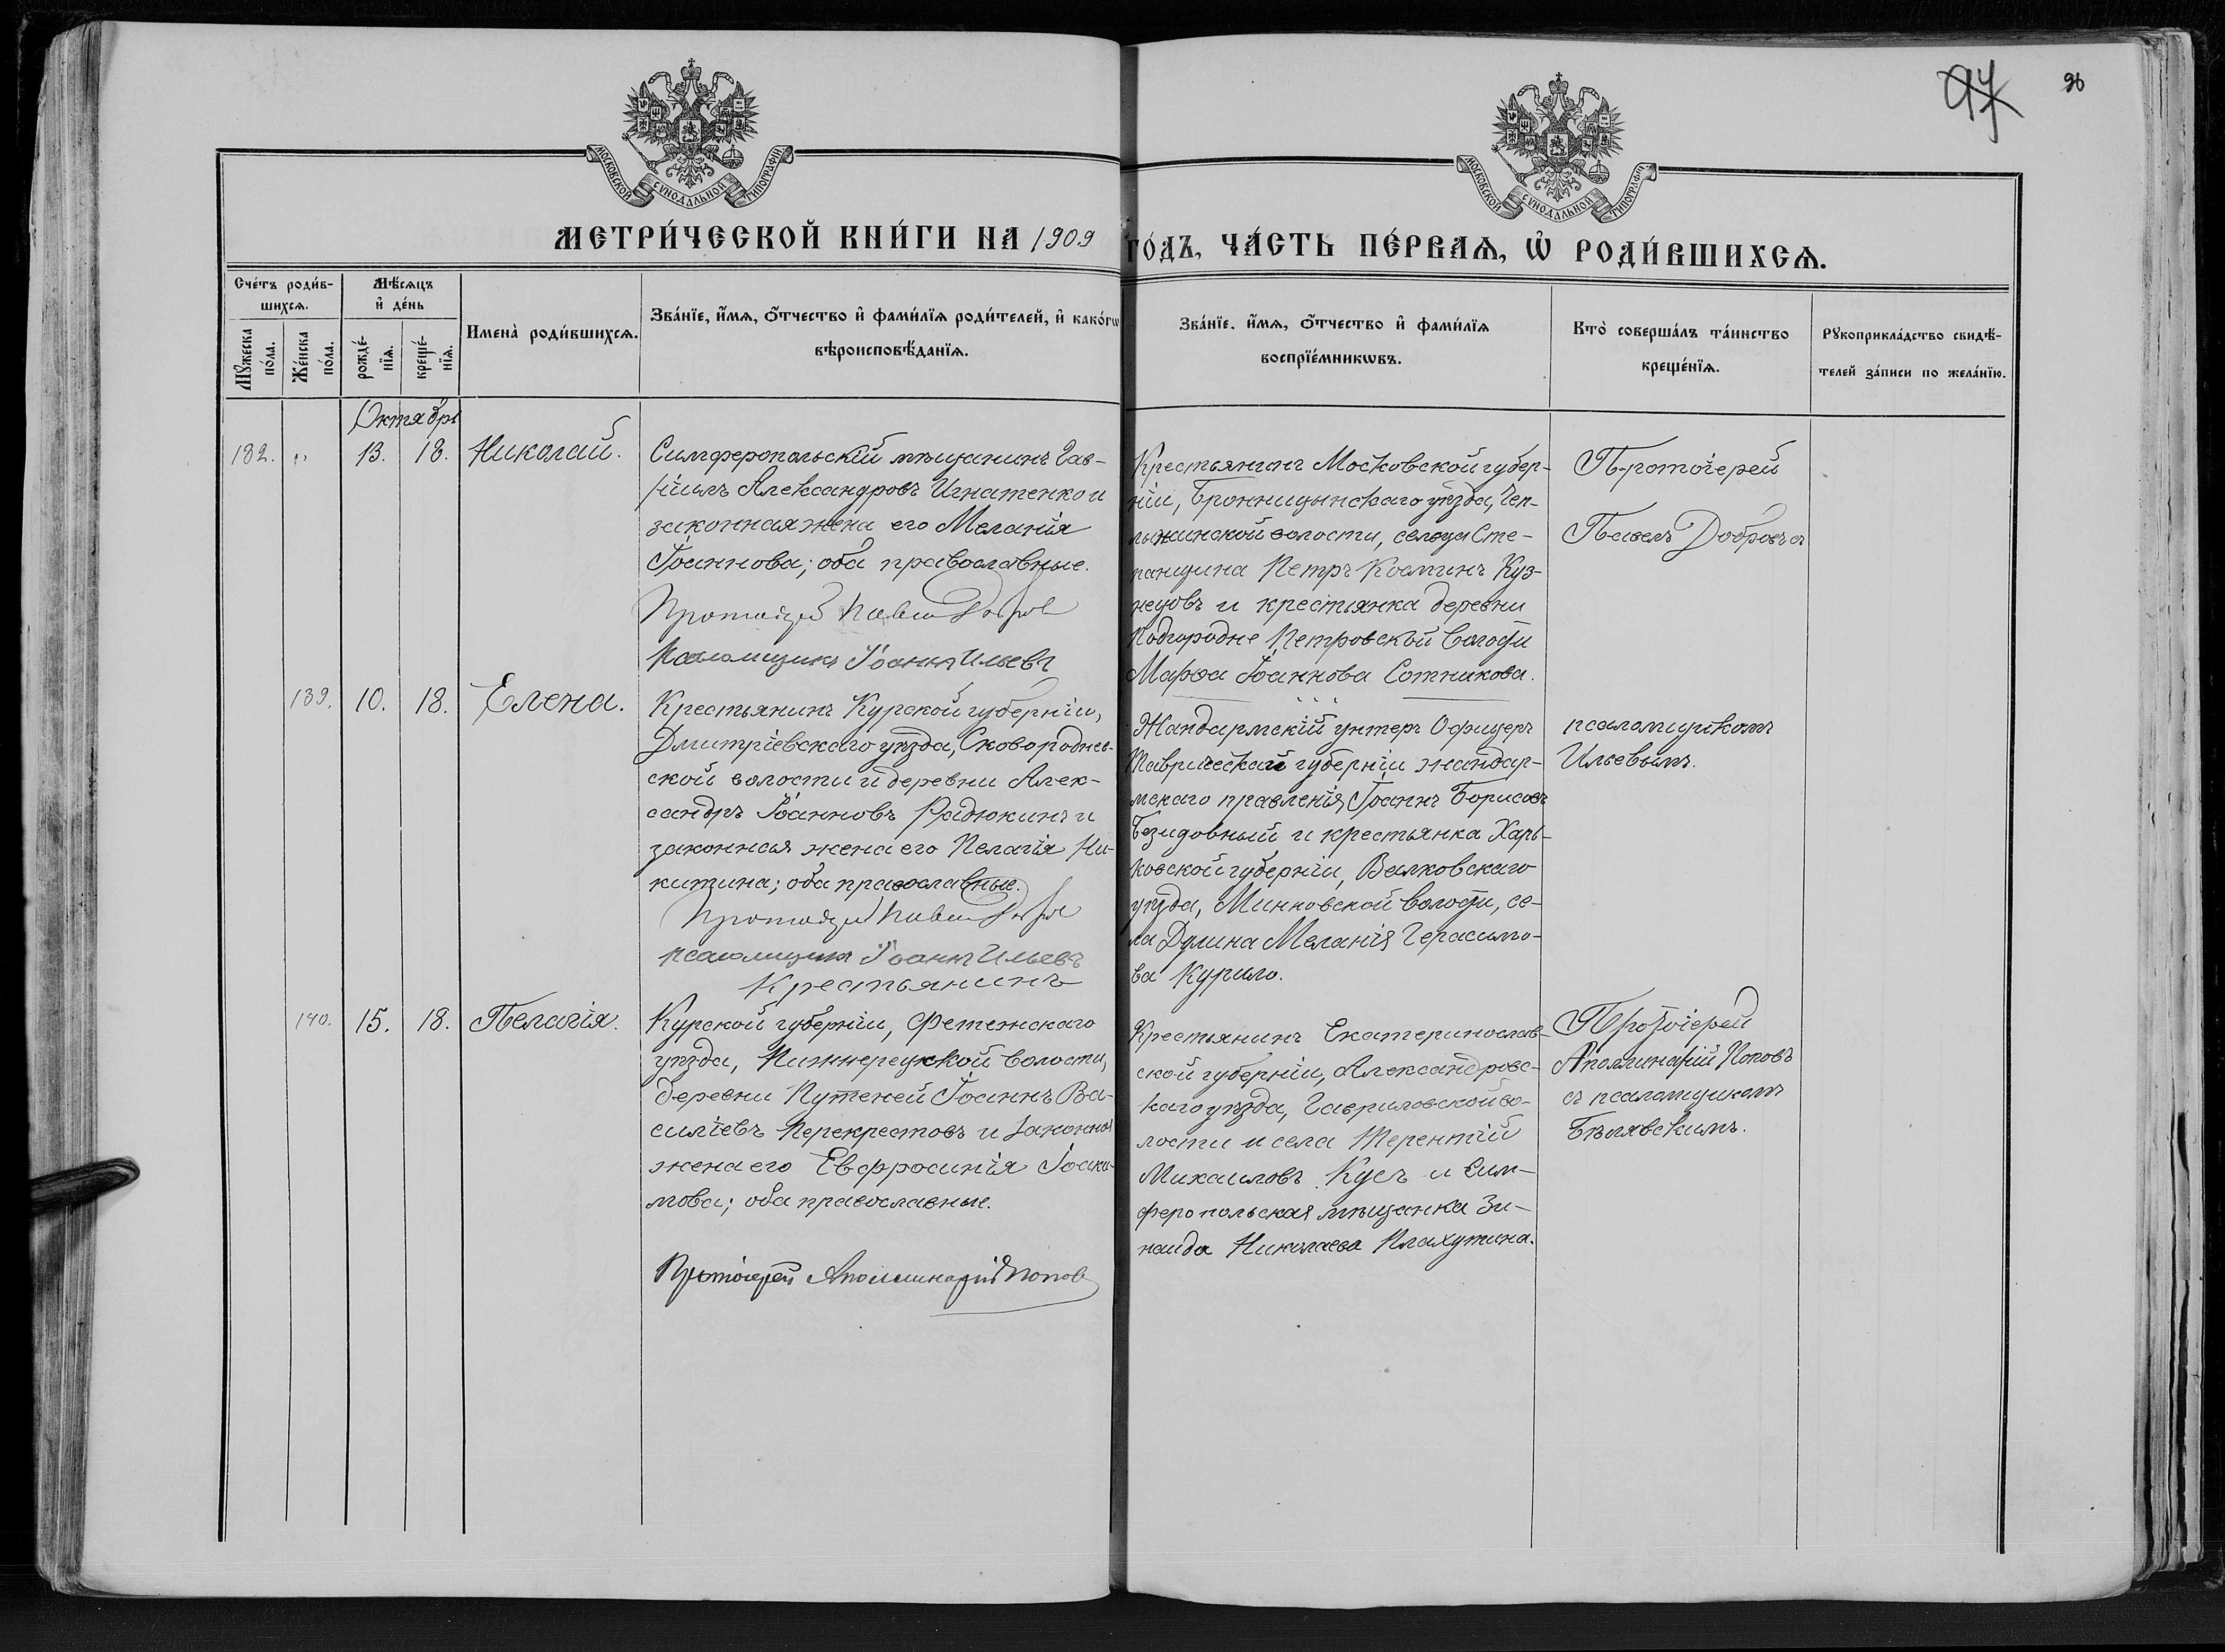 97
96
МОСКОВСКОЙ СѴНОДАЛЬНОЙ ТИПОГРАФІИ
МОСКОВСКОЙ СѴНОДАЛЬНОЙ ТИПОГРАФІИ
МЕТРИ́ЧЕСКОЙ КНИ́ГИ НА 1909 ГО́ДЪ, ЧА́СТЬ ПЕ́РВАѦ, Ѡ҆ РОДИ́ВШИХСѦ.
Сче́тъ роди́в-
шихсѧ.
Мꙋ́жеска
по́ла.
Же́нска
по́ла.
Мѣ́сѧцъ
и҆ де́нь
рожде́-
нїѧ.
креще́-
нїѧ.
Имена̀ роди́вшихсѧ.
Зва́нїе, и҆́мѧ, ѻ҆́тчество и҆ фами́лїѧ роди́телей, и҆ како́гѡ
вѣроисповѣ́данїѧ.
Зва́нїе, и҆́мѧ, ѻ҆́тчество и҆ фами́лїѧ
воспрїе́мникѡвъ.
Кто̀ соверша́лъ та́инство
креще́нїѧ.
Рꙋкоприкла́дство свидѣ́-
телей за́писи по жела́нїю.
Октябрь
132. " 13. 18. Николай.
Симферопольскій мѣщанинъ Гав-
ріилъ Александровъ Игнатенко и
законная жена его Меланія
Іоаннова; оба православные.
Протоіерей Павелъ Добровъ
Псаломщикъ Іоаннъ Ильевъ
Крестьянинъ Московской губер-
ніи, Бронницынскаго уѣзда,
волости, сельца Сте-
панщина Петръ Косминъ Куз-
нецовъ и крестьянка деревни
Подгородне Петровской волости
Марѳа Іоаннова Сотникова.
Протоіерей
Павелъ Добровъ съ
139. 10. 18. Елена.
Крестьянинъ Курской губерніи,
Дмитріевскаго уѣзда, Сковороднев-
ской волости и деревни Алек-
сандръ Іоанновъ Радюкинъ и
законная жена его Пелагія Ни-
китина; оба православные.
Протоіерей Павелъ Добровъ
псаломщикъ Іоаннъ Ильевъ
Жандармскій унтеръ Офицеръ
Таврической губерніи жандар-
мскаго правленія, Іоаннъ Борисовъ
Безидовный и крестьянка Харь-
ковской губерніи, Валковскаго
уѣзда, Минковской волости, се-
ла Дулина Меланія Герасимо-
ва Курило.
псаломщикомъ
Ильевымъ.
140. 15. 18. Пелагія.
Крестьянинъ
Курской губерніи, Фетежскаго
уѣзда, Нижнерецкой волости,
деревни Путеней Іоаннъ Ва-
силіевъ Перекрестовъ и законная
жена его Евфросинія Іоаки-
мова; оба православные.
Протоіерей Аполлинарій Поповъ
Крестьянинъ Екатеринослав-
ской губерніи, Александровс-
каго уѣзда, Гавриловской во-
лости и села Терентій
Михаиловъ Кусъ и Сим-
феропольская мѣщанка Зи-
наида Николаева Плахутина.
Протоіерей
Аполлинарій Поповъ
съ псаломщикомъ
Бѣлявскимъ.